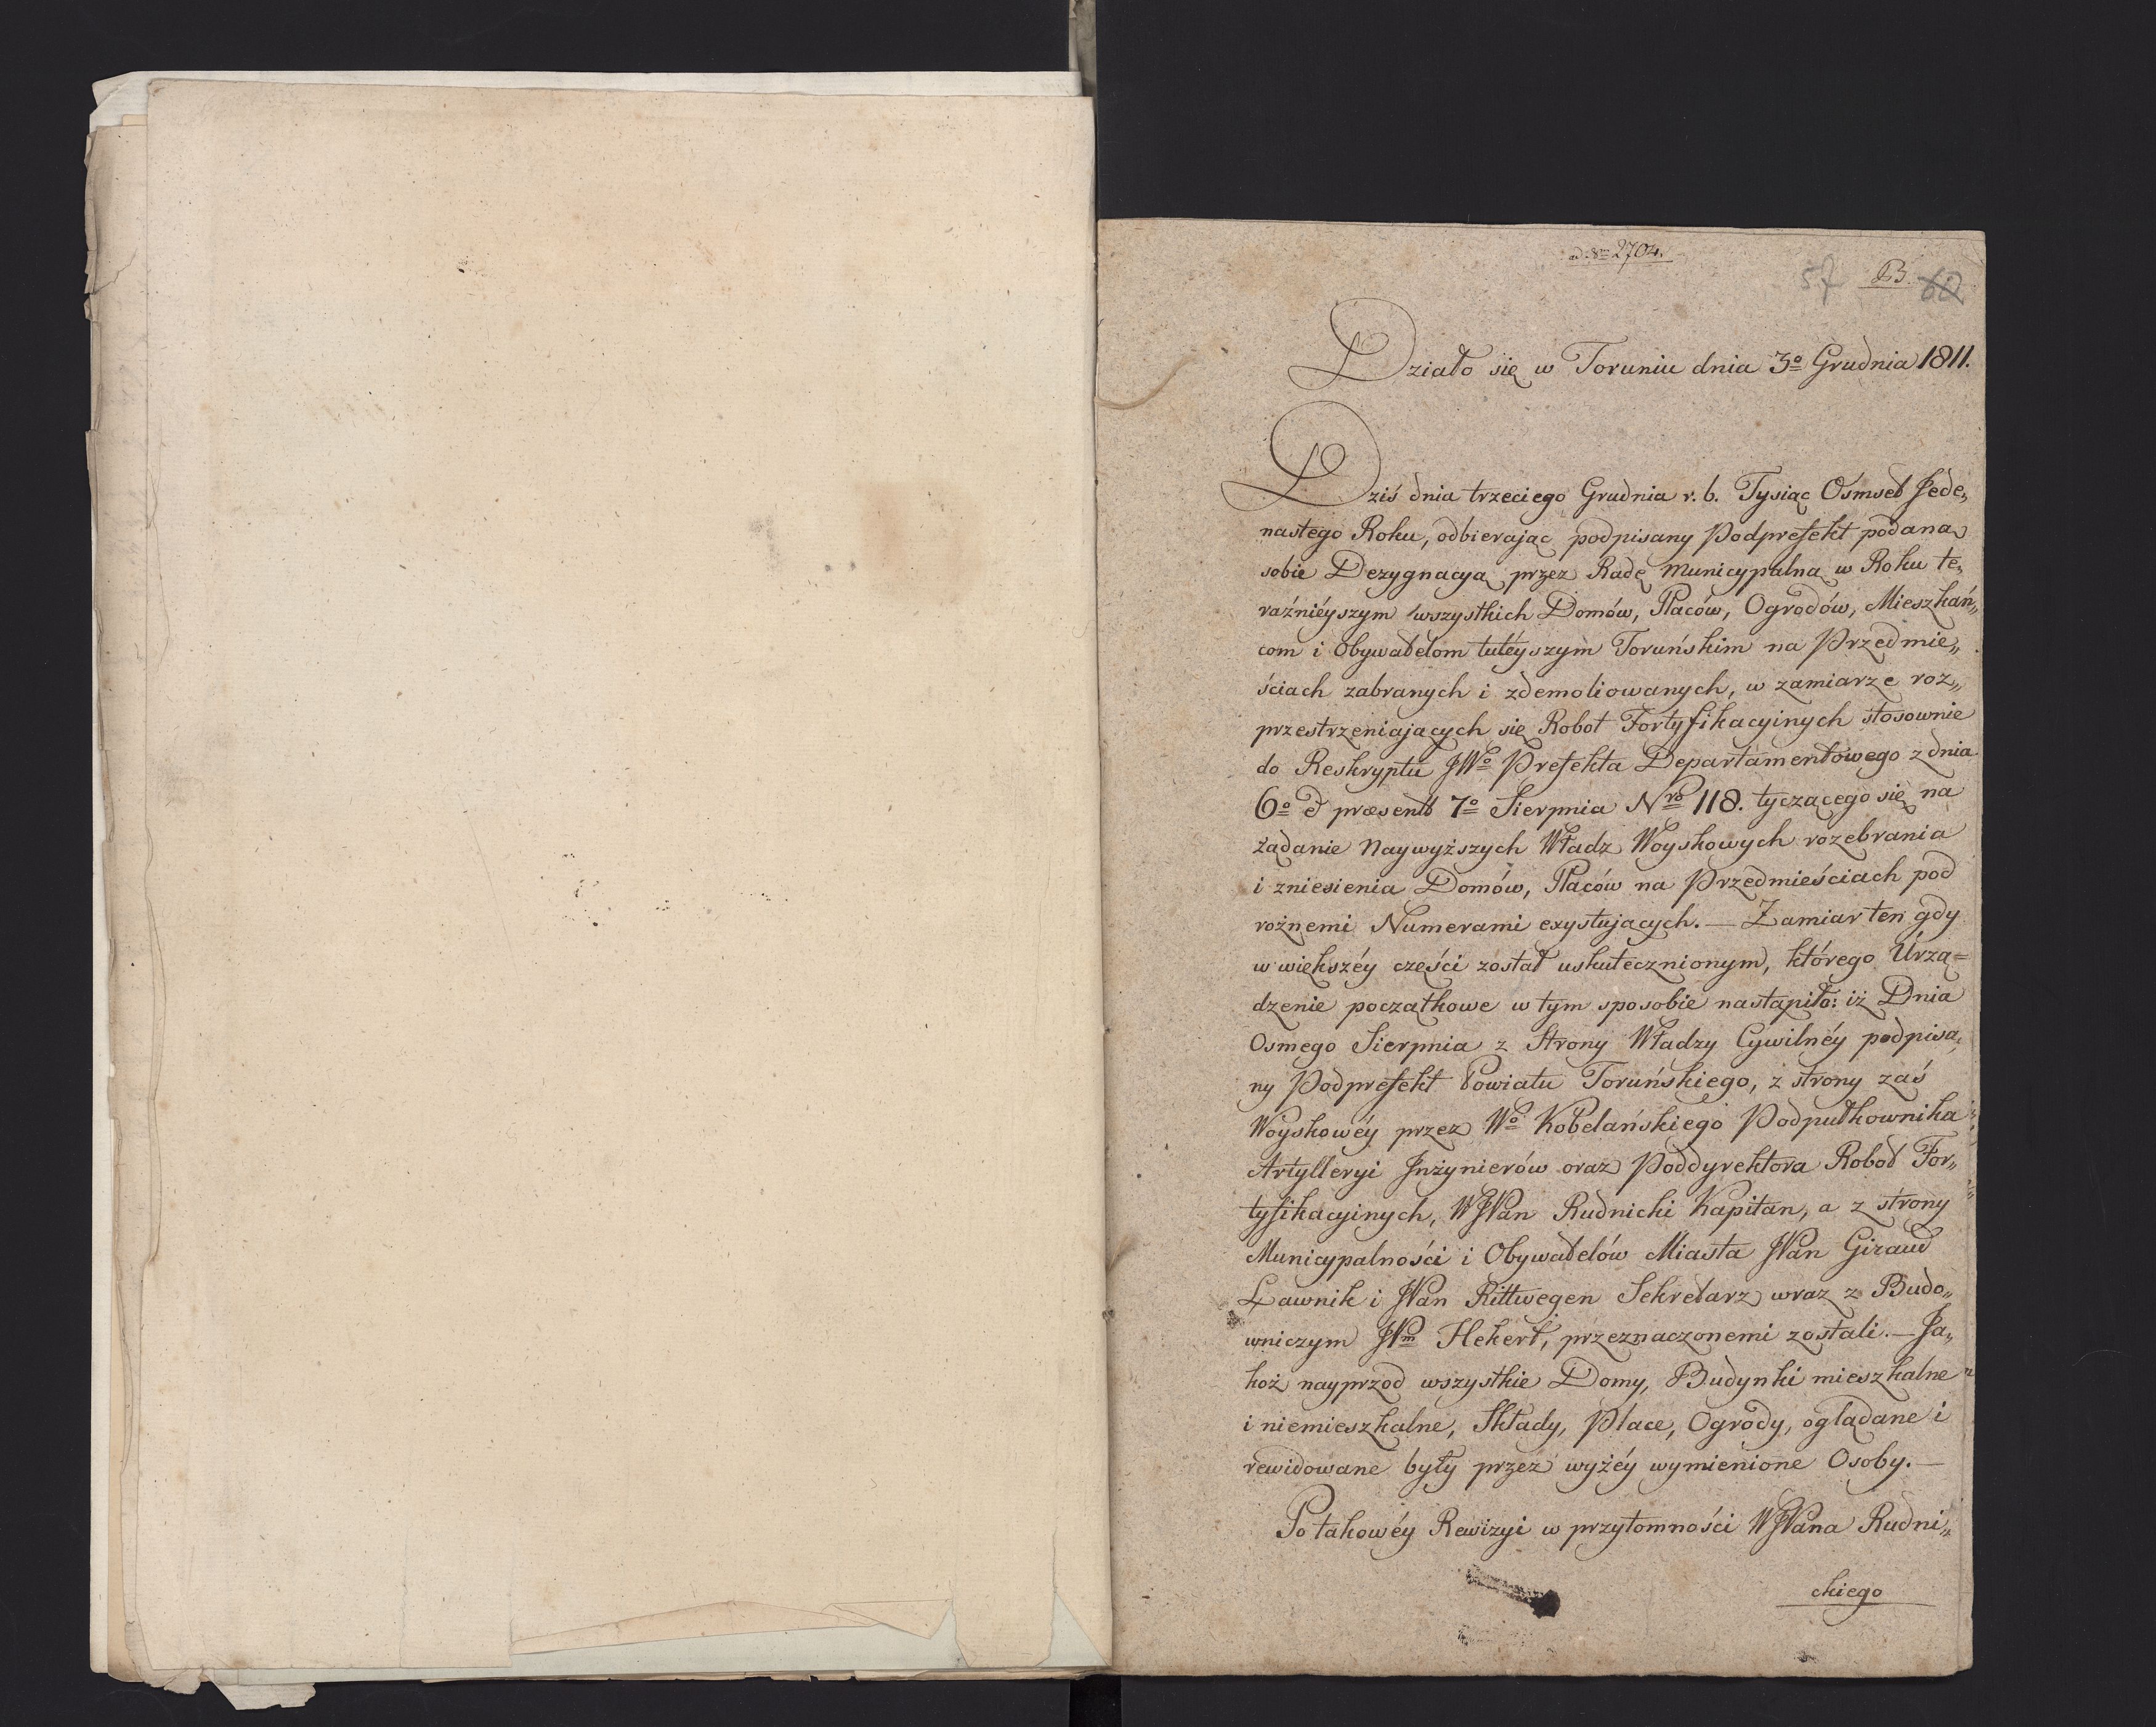 ad Nm 2704.
57 B. 60
Działo się w Toruniu dnia 3o Grudnia 1811.
Dziś dnia trzeciego Grudnia r. b. Tysiąc Osmset Jede„
nastego Roku, odbierając podpisany Podprefekt podaną
sobie Dezygnacyą przez Radę Municypalną w Roku te„
raźnieyszym wszystkich Domów, Placów, Ogrodów, Mieszkań„
com i Obywatelom tuteyszym Toruńskim na Przedmie„
ściach zabranych i zdemoliowanych, w zamiarze roz„
przestrzeniaiących się Robot Fortyfikacyinych stosownie
do Reskryptu JWo Prefekta Departamentowego z dnia
6o et præsent 7o Sierpnia Nro 118. tyczącego się na
żądanie Naywyższych Władz Woyskowych rozebrania
i zniesienia Domów, Placów na Przedmieściach pod
rożnemi Numerami exystuiących. — Zamiar ten gdy
w większéy części został uskutecznionym, którego Urzą=
dzenie początkowe w tym sposobie nastąpiło: iż Dnia
Osmego Sierpnia z Strony Władzy Cywilnéy podpisa„
ny Podprefekt Powiatu Toruńskiego, z strony zaś
Woyskowéy przez Wo Kobelańskiego Podpułkownika
Artylleryi Jnżynierów oraz Poddyrektora Robot For„
tyfikacyinych, WJPan Rudnicki Kapitan, a z strony
Municypalności i Obywatelów Miasta JPan Giraud
Ławnik i JPan Rittwegen Sekretarz wraz z Budo„
wniczym JPm Hekert, przeznaczonemi zostali. — Ja„
koż nayprzod wszystkie Domy, Budynki mieszkalne
i niemieszkalne, Składy, Place, Ogrody, oglądane i
rewidowane były przez wyżéy wymienione Osoby. —
Po takowéy Rewizyi w przytomności WJPana Rudni„
ckiego